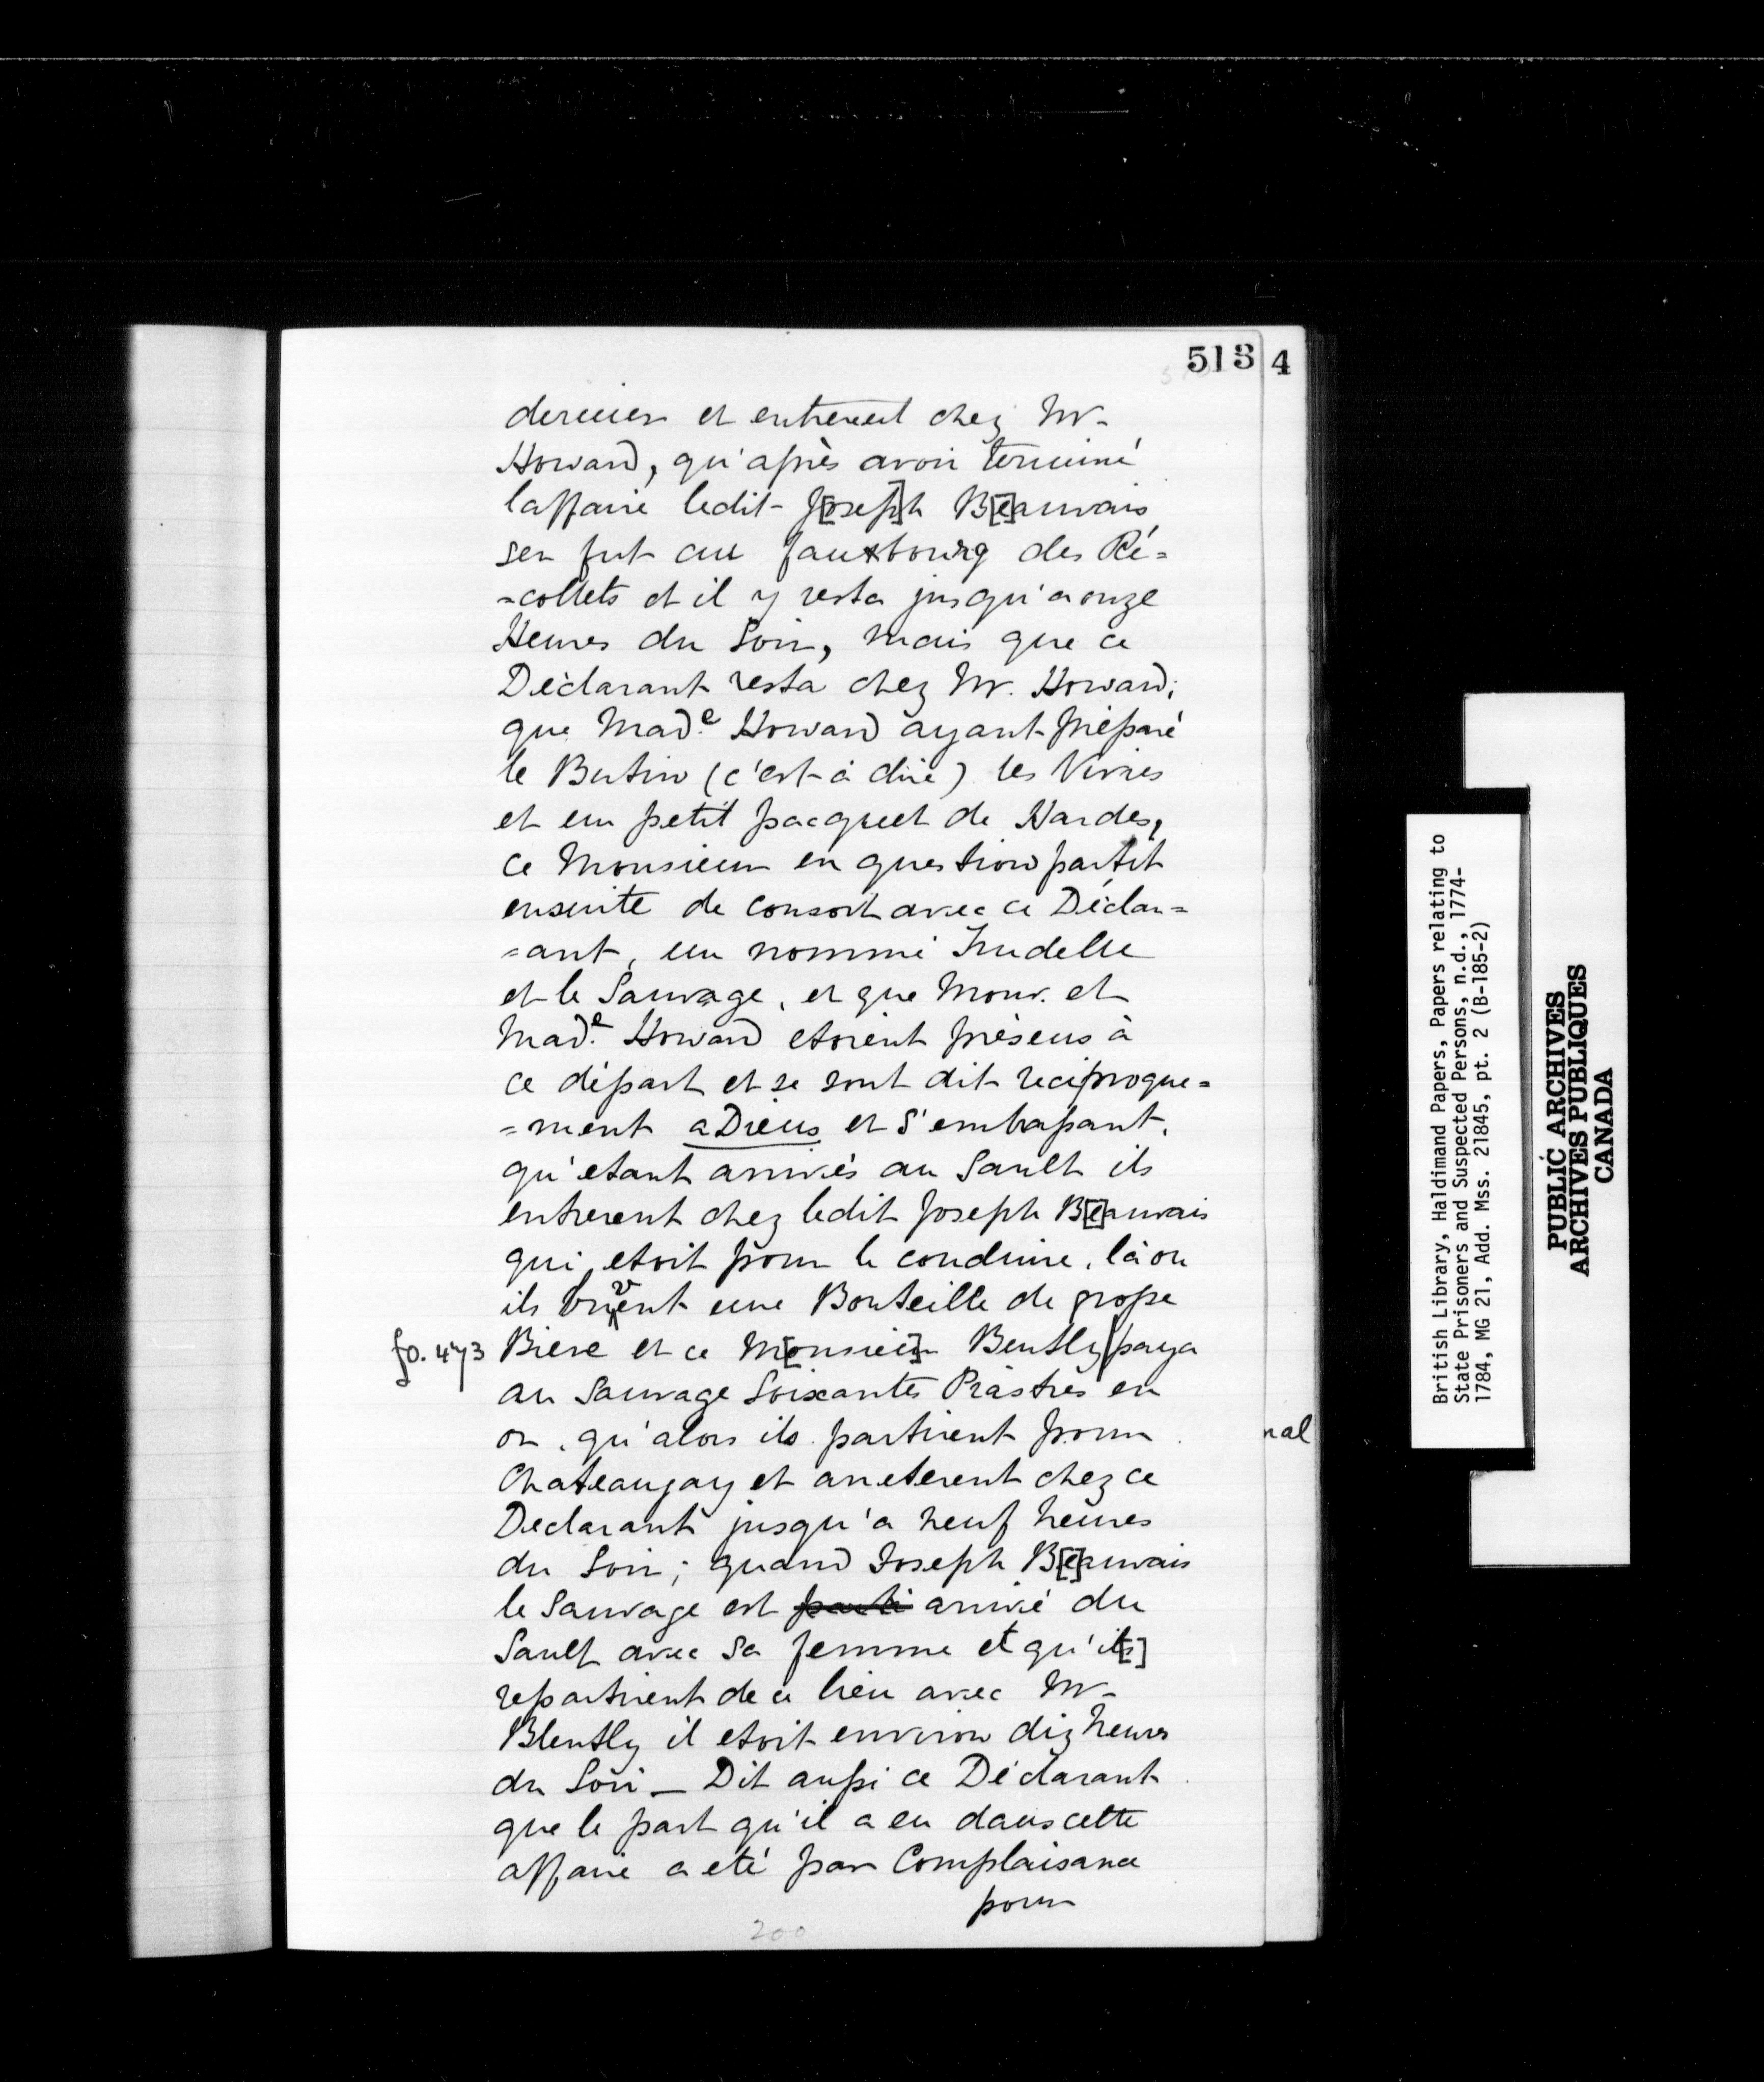 513 4
dernier et entrerent chez Mr.
Howard, qu'après avoir terminé
laffaire ledit J[ose]ph B[e]auvais
sen fut au fauxbourg des Ré=
=collets et il y resta jusqu'a onze
Heures du Soir, mais que ce
Déclarant resta chez Mr. Howard;
que Made. Howard ayant préparé
le Butin (c'est-à dire) les Vivres
et un petit pacquet de Hardes,
ce Monsieur en question partit
ensuite de consort avec ce Déclar=
=ant, un nommé Trudelle
et le Sauvage, et que Monr. et
Made. Howard etoient présens à
ce départ et se sont dit reciproque=
=ment aDieus et S'embrassant.
qu'etant arrivés au Sault ils
entrerent chez ledit Joseph B[e]auvais
qui etoit pour le conduire, là ou
ils buvent une Bouteille de grosse
fo. 473 Biere et ce M[onsieu]r Bently/paya
au Sauvage Soixante Piastres en
or, qu'alors ils partirent pour
nal
Chateaugay et arreterent chez ce
Declarant jusqu'a neuf heures
du Soir; quand Joseph B[e]auvais
le Sauvage est parti arrivé du
Sault avec Sa femme et qu'il[s]
repartirent de ce lieu avec Mr.
Blently il etoit environ dix heures
du Soir _ Dit aussi ce Déclarant
que le part qu'il a eu dans cette
affaire a eté par Complaisance
pour
200
British Library, Haldimand Papers, Papers relating to
State Prisoners and Suspected Persons, n.d., 1774-
1784, MG 21, Add. Mss. 21845, pt. 2 (B-185-2)
PUBLIC ARCHIVES
ARCHIVES PUBLIQUES
CANADA